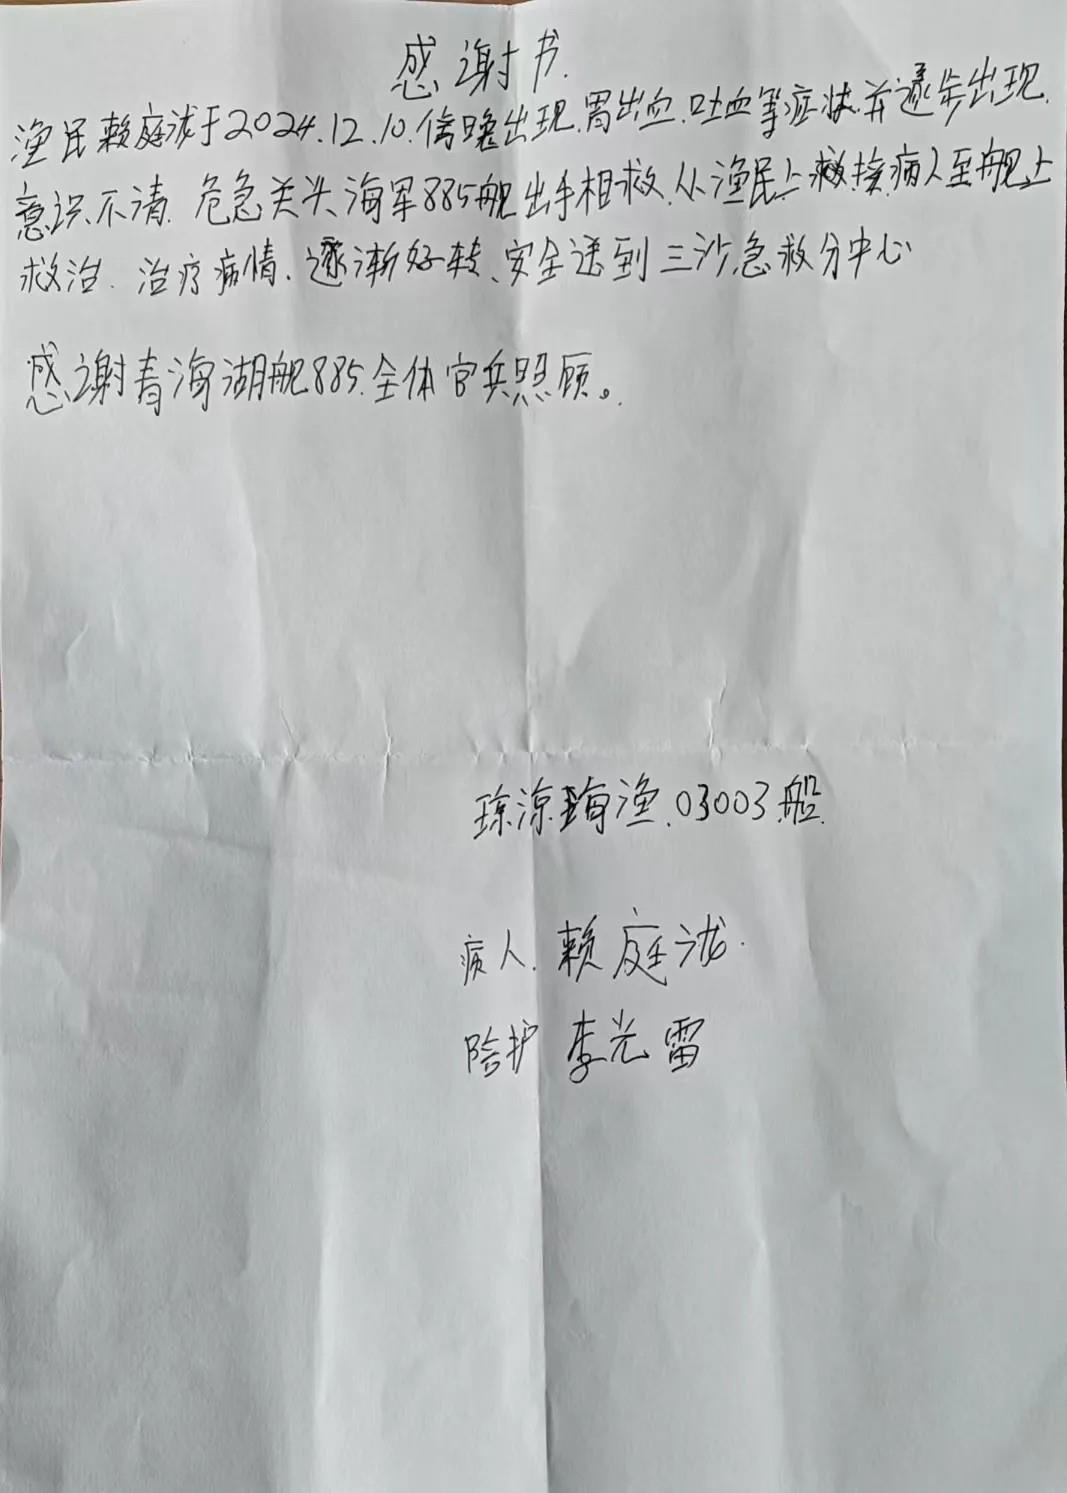 感谢书.
渔民赖庭泷于2024.12.10.傍晚出现.胃出血.吐血等症状.并逐步出现.
意识不清.危急关头海军885舰出手相救.从渔民上救接病人至舰上
救治.治疗病情.逐渐好转、安全送到三沙急救分中心
感谢青海湖舰885.全体官兵照顾。
琼琼海渔.03003.船.
病人.赖庭泷.
陪护 李光雷